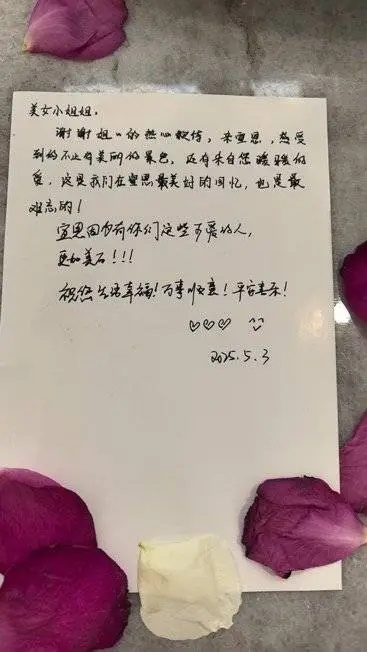 美女小姐姐，
谢谢姐姐的热心款待，来宣恩，感受
到的不止有美丽的景色，还有来自您暖暖的
爱，这是我们在宣恩最美好的回忆，也是最
难忘的！
宣恩因为有你们这些可爱的人，
更加美石！！！
祝您生活幸福！万事顺意！平安喜乐！
♡♡♡ ^^
2025.5.3